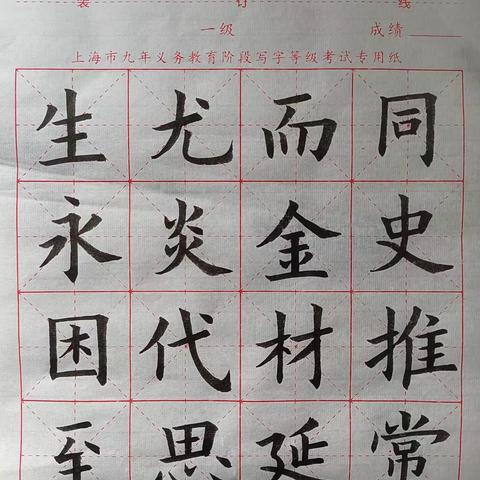 装 订 线
一级 成绩
上海市九年义务教育阶段写字等级考试专用纸
生尤而同
永炎金史
困代材推
至思延常